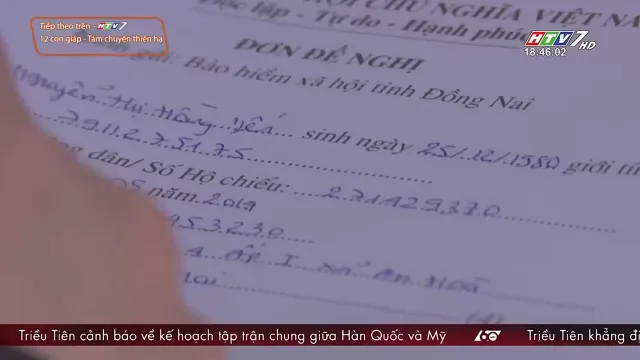 Tiếp theo trên - HTV7
12 con giáp - Tám chuyện thiên hạ
HTV7 HD
18:46:02
CHỦ NGHĨA VIỆT NA
Độc lập - Tự do - Hạnh phúc
ĐƠN ĐỀ NGHỊ
gửi: Bảo hiểm xã hội tỉnh Đồng Nai
Nguyễn Thị Hồng Yến sinh ngày 25/12/1980 giới tí
7911275175
dân/ Số Hộ chiếu: 271429370
năm 2019
453230
A ấp I xã An Hoà
Triều Tiên cảnh báo về kế hoạch tập trận chung giữa Hàn Quốc và Mỹ 60 Triều Tiên khẳng đị